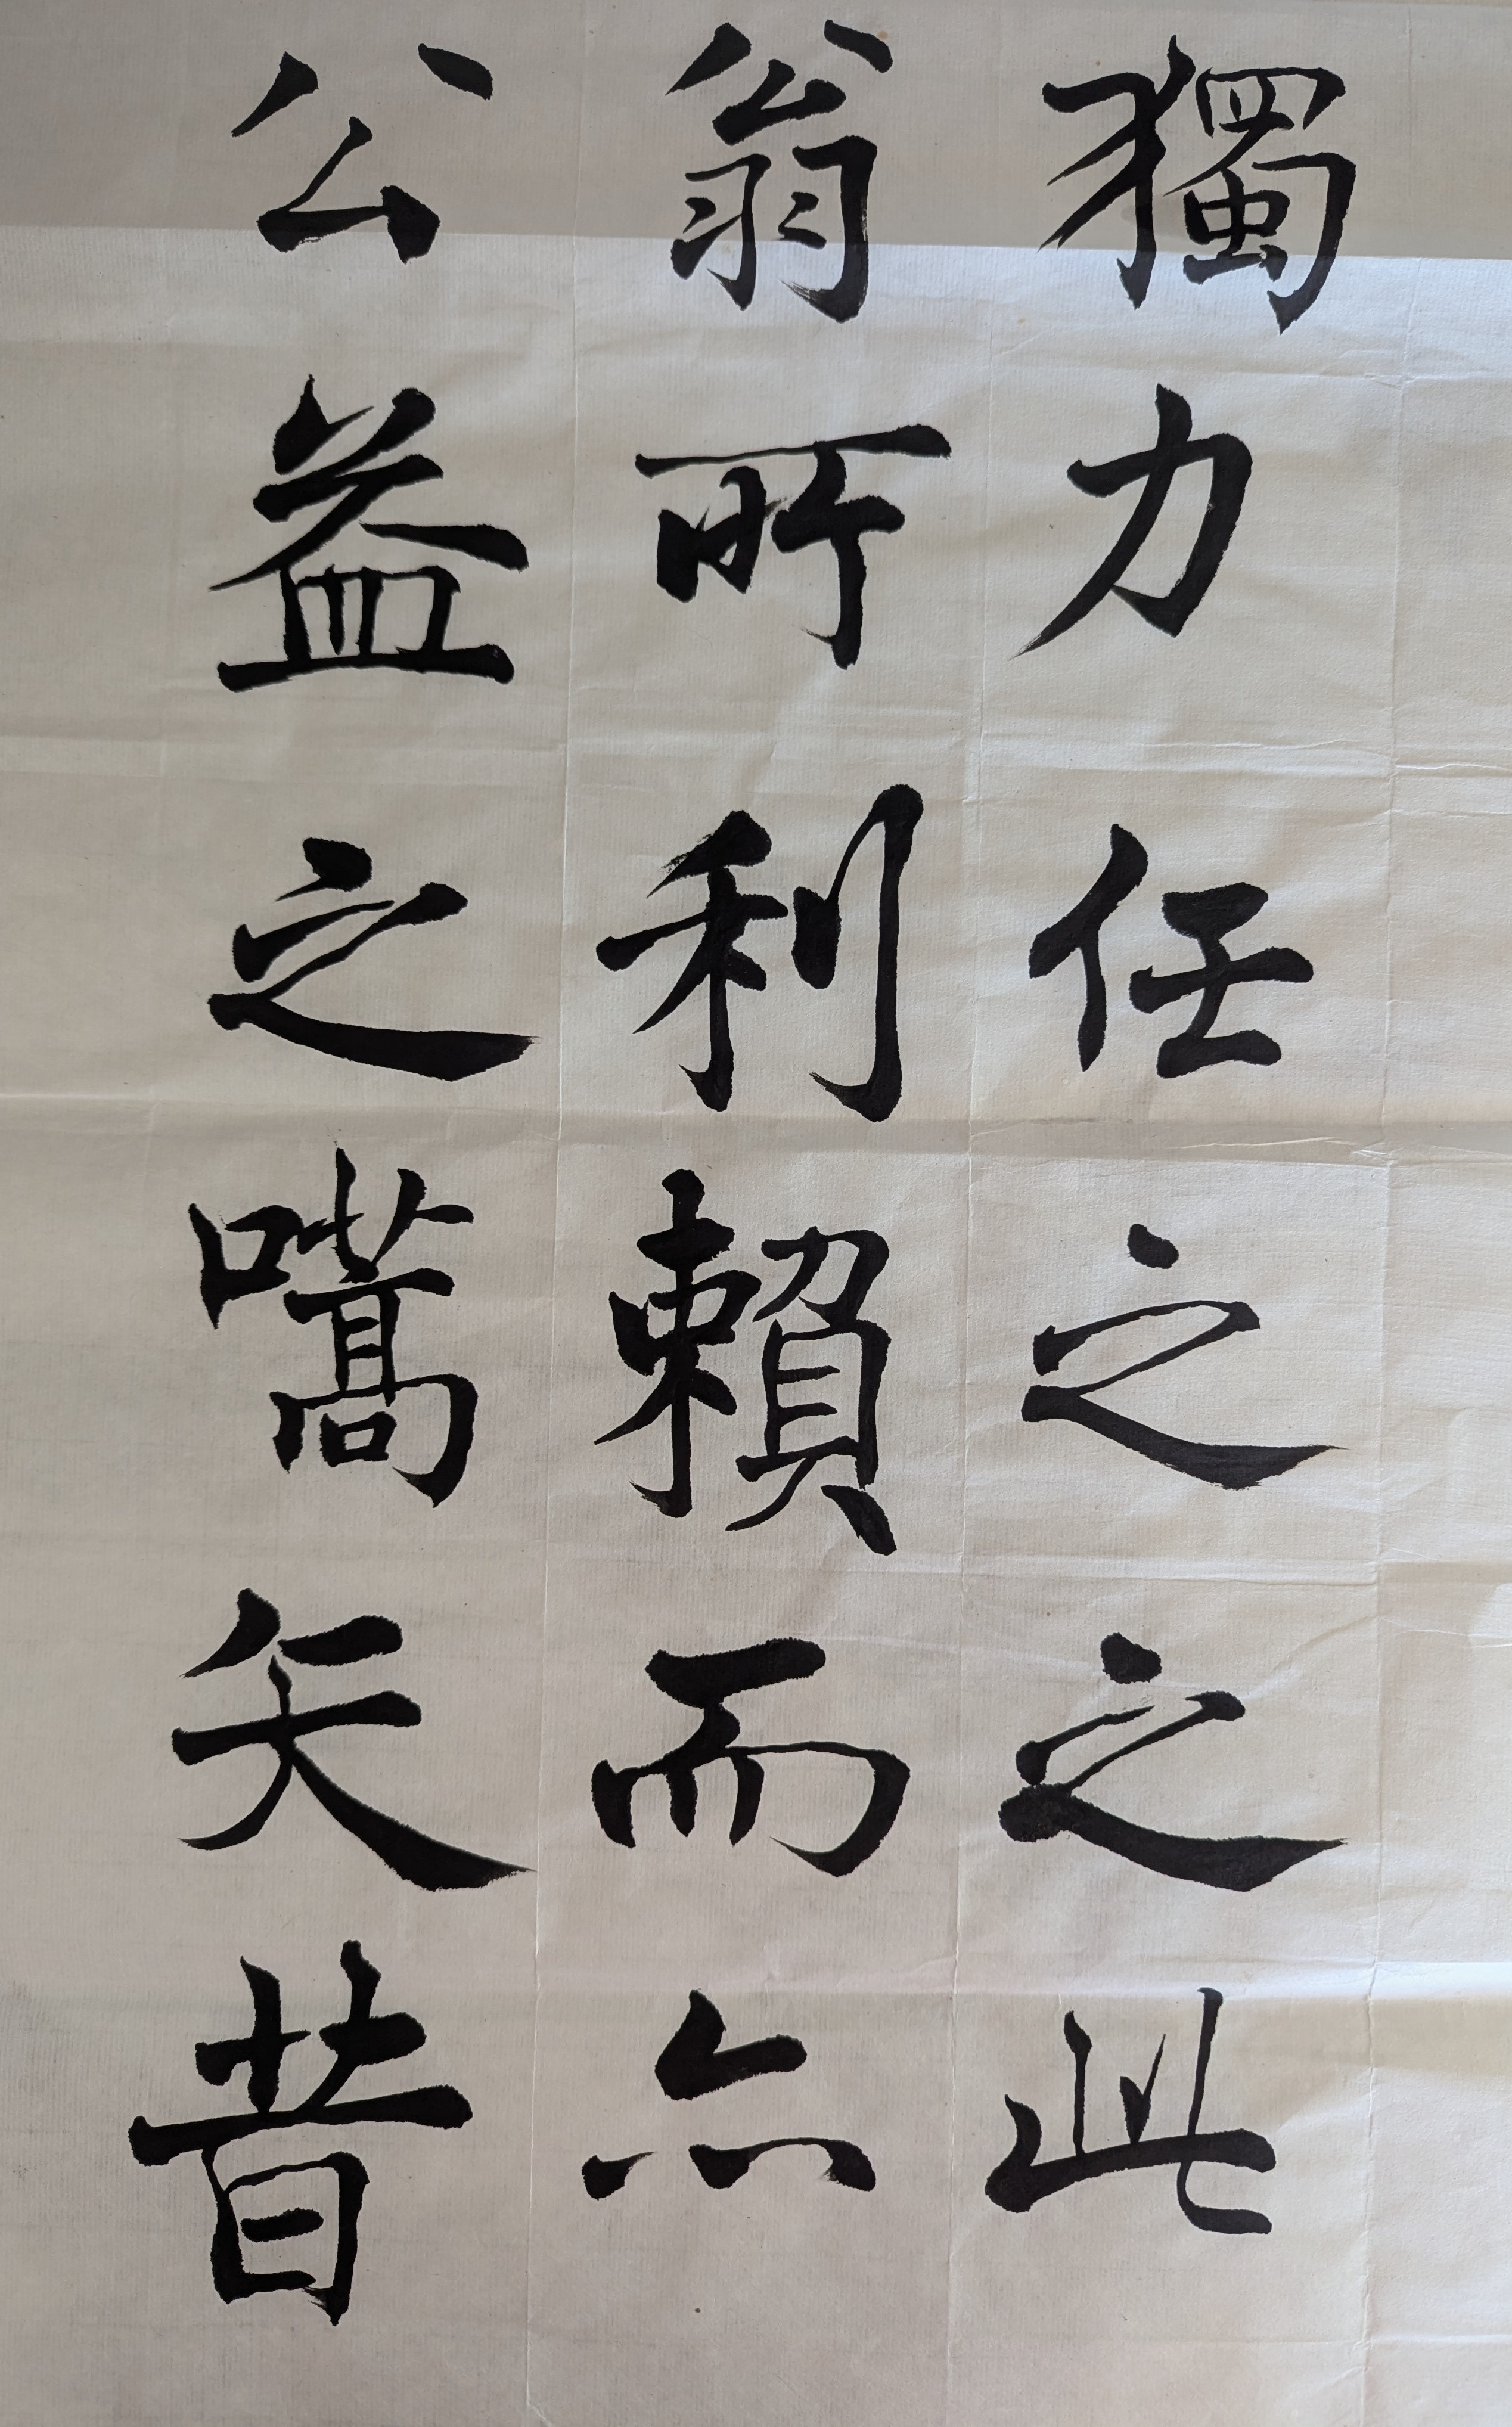 獨力任之之此
翁所利賴而亦
公益之嚆矢昔